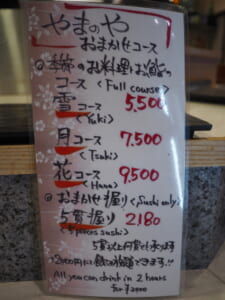 やまのや
おまかせコース
◎季節のお料理と
コース <Full course>
雪コース 5,500
<Yuki>
月コース 7,500
<Tsuki>
花コース 9,500
<Hana>
◎おまかせ握り <Sushi only>
5貫握り 2180
<5 pieces sushi>
5貫以上
+2000円にて飲み放題できます!!
All you can drink in 2 hours
for ¥2000